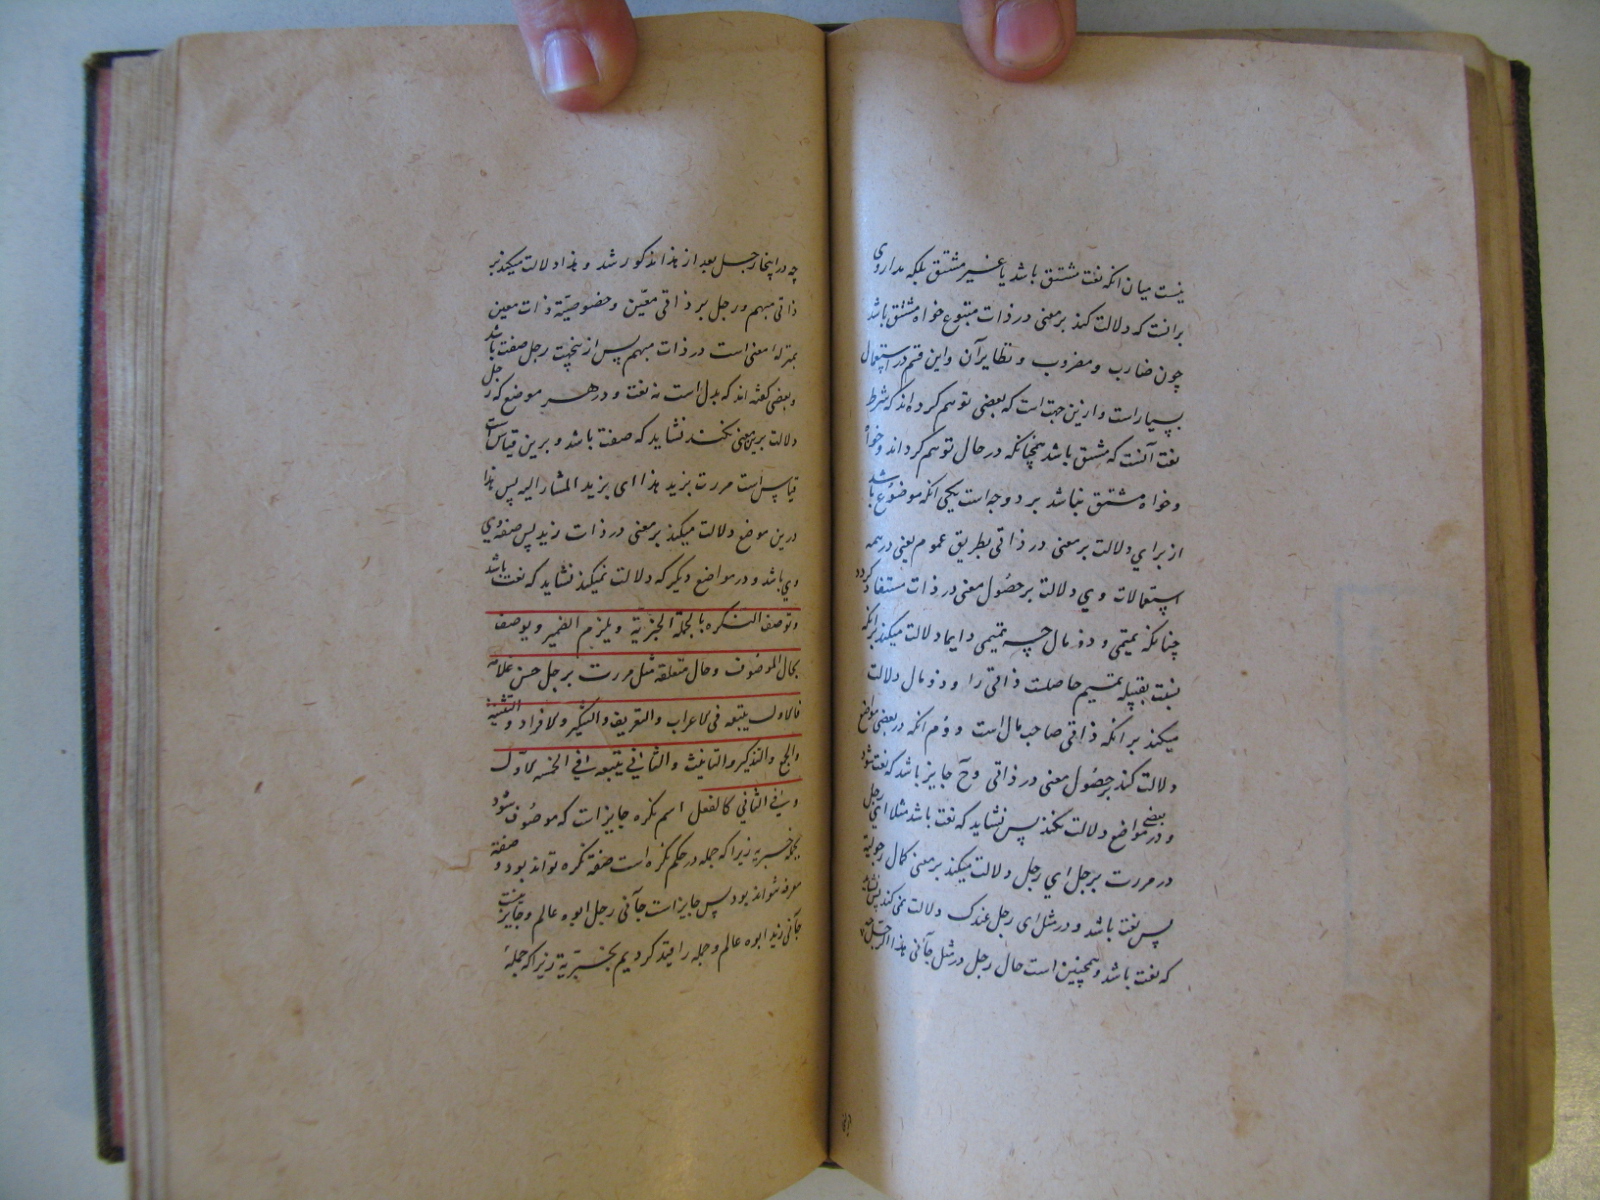 نیست میان انکه نعت مشتق باشد یا غیر مشتق بلکه مدار وی
برانست که دلالت کند بر معنی در ذات متبوع خواه مشتق باشد
چون ضارب و مضروب و نظایر آن و این قسم در استعمال
بسیار است و ازین جهت است که بعضی توهم کرده اند که شرط
نعت آنست که مشتق باشد همچنانکه در حال توهم کرده اند و خواه
و خواه مشتق نباشد بر دو وجه است یکی انکه موضوع باشد
از برای دلالت بر معنی در ذاتی بطریق عموم یعنی در همه
استعمالات وی دلالت بر حصول معنی در ذات مستفاد کردد
چنانکه تمیمی و ذو مال چه تمیمی دایما دلالت میکند بر انکه
نسبت بقبیله تمیم حاصلست ذاتی را و ذو مال دلالت
میکند بر انکه ذاتی صاحب مال است و دوم انکه در بعضی مواضع
دلالت کند بر حصول معنی در ذاتی وح جایز باشد که نعت شود
و در بعضی مواضع دلالت نکند پس نشاید که نعت باشد مثلا ای رجل
در مررت برجل ای رجل دلالت میکند بر معنی کمال رجولیة
پس نعت باشد و در مثل ای رجل عندک دلالت نمی کند پس نشاید
که نعت باشد و همچنین است حال رجل در مثل جآنی هذا الرجل
چه در اینجا رجل بعد از هذا مذکور شد و هذا دلالت میکند بر
ذاتی مبهم و رجل بر ذاتی معین و خصوصیة ذات معین
بمنزله معنی است در ذات مبهم پس از ینجهت رجل صفت باشد
و بعضی کفته اند که بدل است نه نعت و در هر موضع که رجل
دلالت برین معنی نکند نشاید که صفت باشد و برین قیاس است
قیاس است مررت بزید هذا ای بزید المشار الیه پس هذا
درین موضع دلالت میکند بر معنی در ذات زید پس صفة وی
وی باشد و در مواضع دیگر که دلالت نمیکند نشاید که نعت باشد
وتوصف النکره بالجملة الخبریة ویلزم الضمیر ویوصف
بحال الموصوف وحال متعلقه مثل مررت برجل حسن غلامه
فالاول یتبعه فی الاعراب والتعریف والتنکیر والافراد والتثنیة
والجمع والتذکیر والتانیث والثانی یتبعه فی الخمسه الاول
وفی الثانی کالفعل اسم نکره جایز است که موصوف شود
بجمله خبریه زیرا که جمله در حکم نکره است صفة نکره تواند بود و صفة
معرفه نتواند بود پس جایز است جآنی رجل ابوه عالم و جایز نیست
جآنی زید ابوه عالم و جمله را قید کردیم بخبریة زیرا که جملهٔ